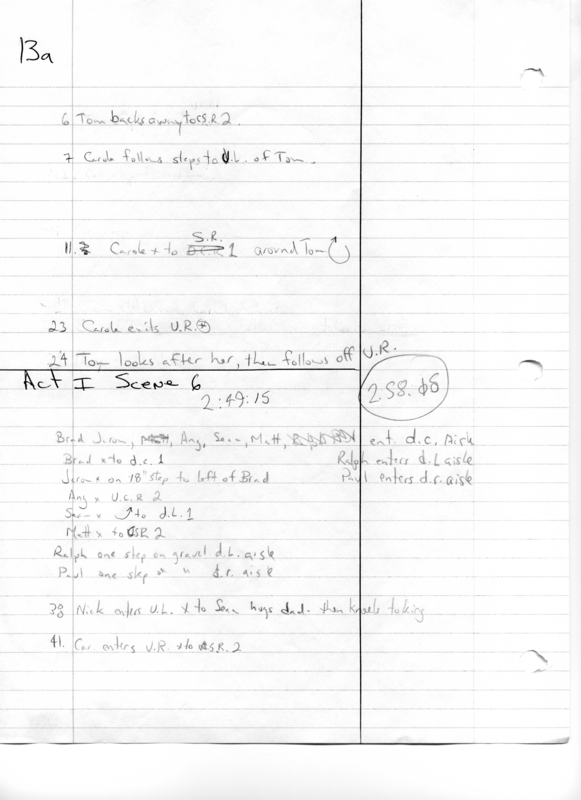 13a
6 Tom backs away to S.R 2.
7 Carole follows steps to U.L. of Tom.
S.R.
11. Carole x to 1 around Tom
23 Carole exits U.R.
24 Tom looks after her, then follows off U.R.
Act I Scene 6
2:49:15
2.58.06
Brad Jerom, Ang, Sean, Matt, ent. d.c. Aisle
Brad x to d.c. 1 Ralph enters d.L aisle
Jerom x on 18" step to left of Brad Paul enters d.r. aisle
Ang x U.C.R 2
Sean x to d.L.1
Matt x to SR 2
Ralph one step on gravel d.L. aisle
Paul one step " " d.r. aisle
38 Nick enters U.L. x to Sean hugs dad. then kneels to king
41. Car enters U.R. x to S.R. 2